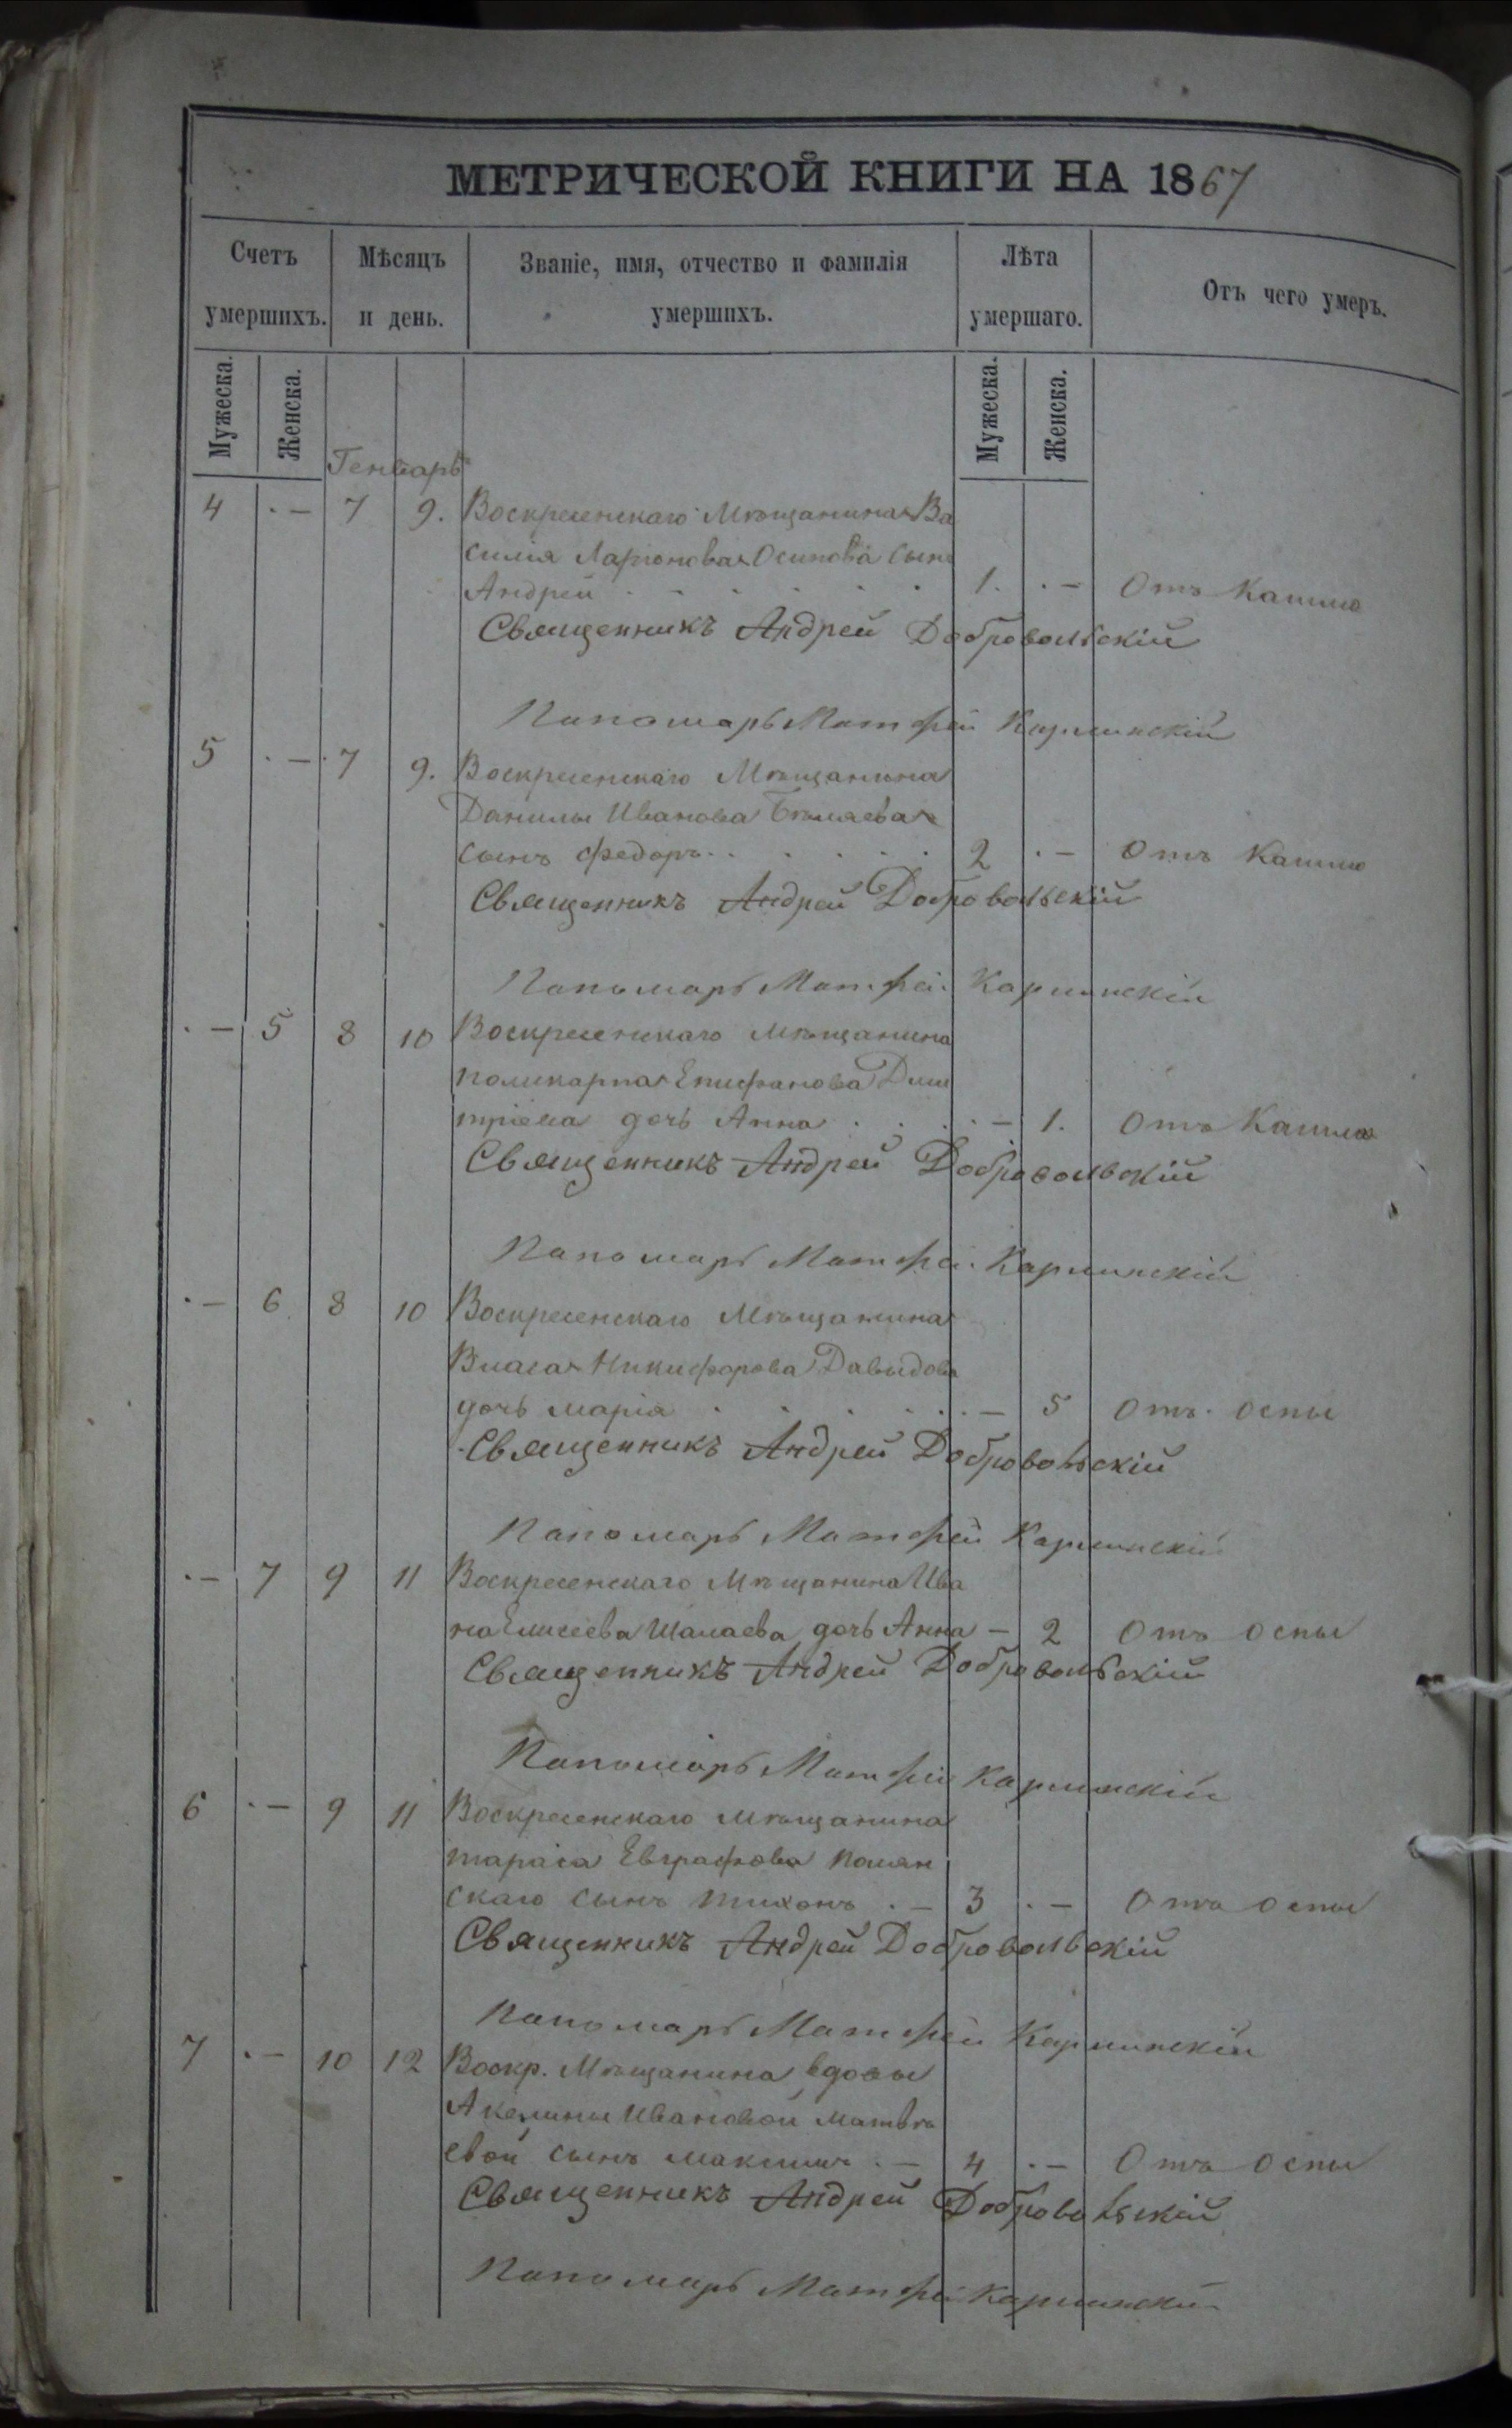 МЕТРИЧЕСКОЙ КНИГИ НА 1867
Счетъ умершихъ. Мѣсяцъ и день. Званіе, имя, отчество и фамилія умершихъ. Лѣта умершаго. Отъ чего умеръ.
Мужеска. Женска. Мужеска. Женска.
Генварь
4 . — 7 9. Воскресенскаго Мѣщанина Ва
силія Ларіонова Осипова сынъ
Андрей . . . . . . 1. . — Отъ Кашлю
Священникъ Андрей Добровольскій
Пономарь Матфей Карлинскій
5 . — 7 9. Воскресенскаго Мѣщанина
Данилы Иванова Бѣляева
сынъ Федоръ . . . . . 2 . — Отъ Кашлю
Священникъ Андрей Добровольскій
Пономарь Матфей Карлинскій
. — 5 8 10 Воскресенскаго мѣщанина
поликарпа Епифанова Дми
тріева дочь Анна . . . . — 1. Отъ Кашлю
Священникъ Андрей Добровольскій
Пономарь Матфей Карлинскій
. — 6 8 10 Воскресенскаго Мѣщанина
Власа Никифорова Давыдова
дочь марія . . . . . . — 5 Отъ оспы
Священникъ Андрей Добровольскій
Пономарь Матфей Карлинскій
. — 7 9 11 Воскресенскаго Мѣщанина Ива
на Елисеева Шалаева дочь Анна — 2 Отъ оспы
Священникъ Андрей Добровольскій
Пономарь Матфей Карлинскій
6 . — 9 11 Воскресенскаго мѣщанина
тараса Евграфова Полян
скаго сынъ тихонъ . — 3 . — Отъ оспы
Священникъ Андрей Добровольскій
Пономарь Матфей Карлинскій
7 . — 10 12 Воскр. Мѣщанина вдовы
Акелины Ивановой Матвѣ
евой сынъ максимъ . — 4 . — Отъ оспы
Священникъ Андрей Добровольскій
Пономарь Матфей Карлинскій